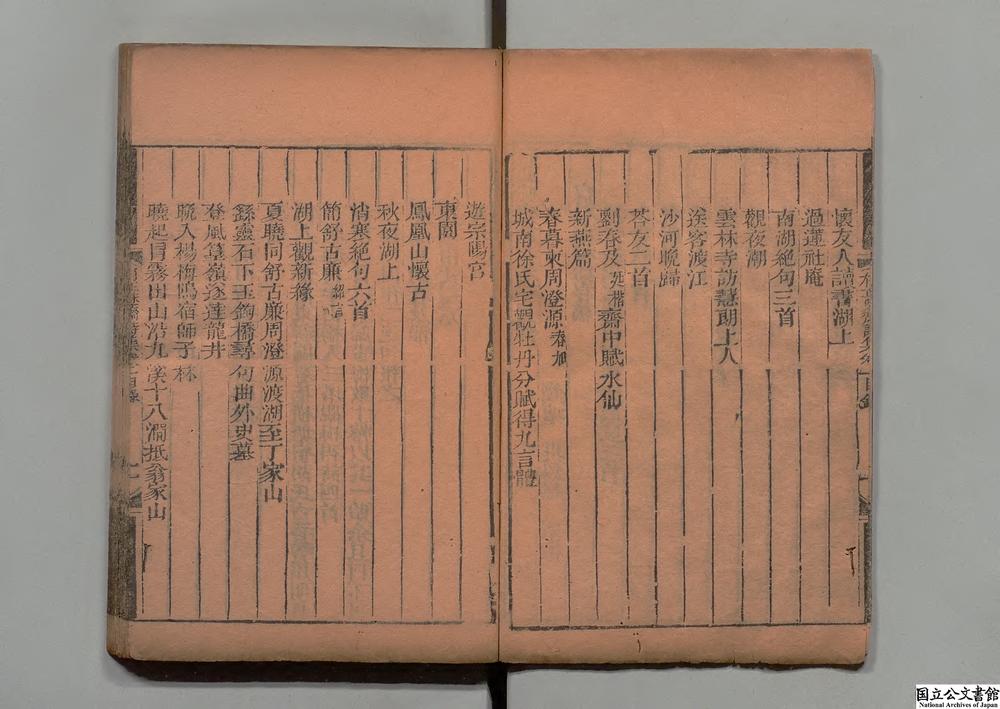 懷友人讀書湖上
過蓮社庵
南湖絕句三首
觀夜潮
雲林寺訪慧朗上人
送客渡江
沙河晚歸
答友二首
劉春及齋中賦水仙
新燕篇
春暮柬周澄源春旭
城南徐氏宅觀牡丹分賦得九言體
遊宗陽宮
東園
鳳凰山懷古
秋夜湖上
消寒絕句六首
簡舒古廉
湖上觀新綠
夏曉同舒古廉周澄源渡湖至丁家山
繇靈石下玉鉤橋尋句曲外史墓
登風篁嶺遂達龍井
晩入楊梅隖宿師子林
曉起冒霧出山沿九溪十八澗抵翁家山
国立公文書館
National Archives of Japan